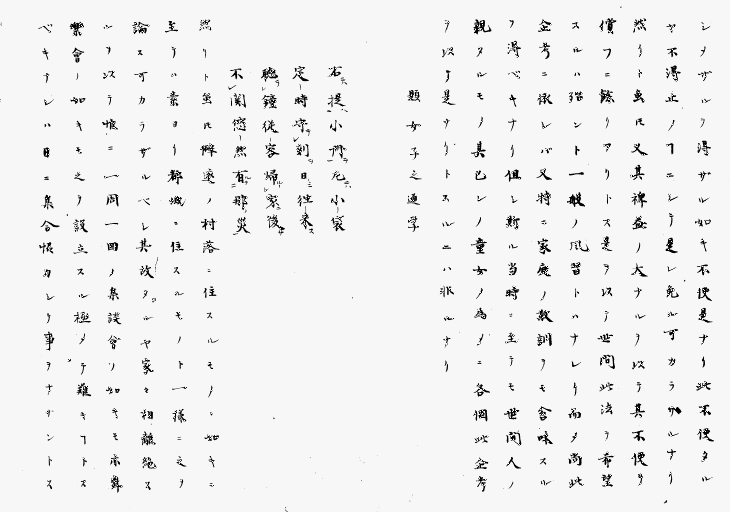 シメザルヲ得ザル如キ不便是ナリ此不便タル
ヤ不得止ノ⼀ニシテ是レ免ル可カラザルナリ
然リト虽𪜈又其裨益ノ大ナルヲ以テ其不便ヲ
償フニ餘リアリトス是ヲ以テ世間此法ヲ希望
スルハ殆ント一般ノ風習トハナレリ而メ尚此
企考ニ依レバ又特ニ家庭ノ教訓ヲモ含味スル
ヿ得ベキナリ但シ斯ル当時ニ至テモ世間人ノ
親タルモノ其已レノ童女ノ為メニ各個此企考
ヲ以テ是ナリトスルニハ非ルナリ
題女子之通学
右提小門左小袋
定時守刻日往来
聴鐘従容帰家後
不関悠然有那災
然リト虽𪜈僻遠ノ村落ニ住スルモノヽ如キニ
至テハ素ヨリ都城ニ住スルモノト一様ニ之ヲ
論ス可カラザルベシ其故タルヤ家々相離絶ス
ルヲ以テ慥ニ一周一回ノ集談會ノ如キモ亦舞
樂會ノ如キモ之ヲ設立スル極メテ難キヿトス
ベキナレハ日ニ集合帳カレリ事ヲナサントス